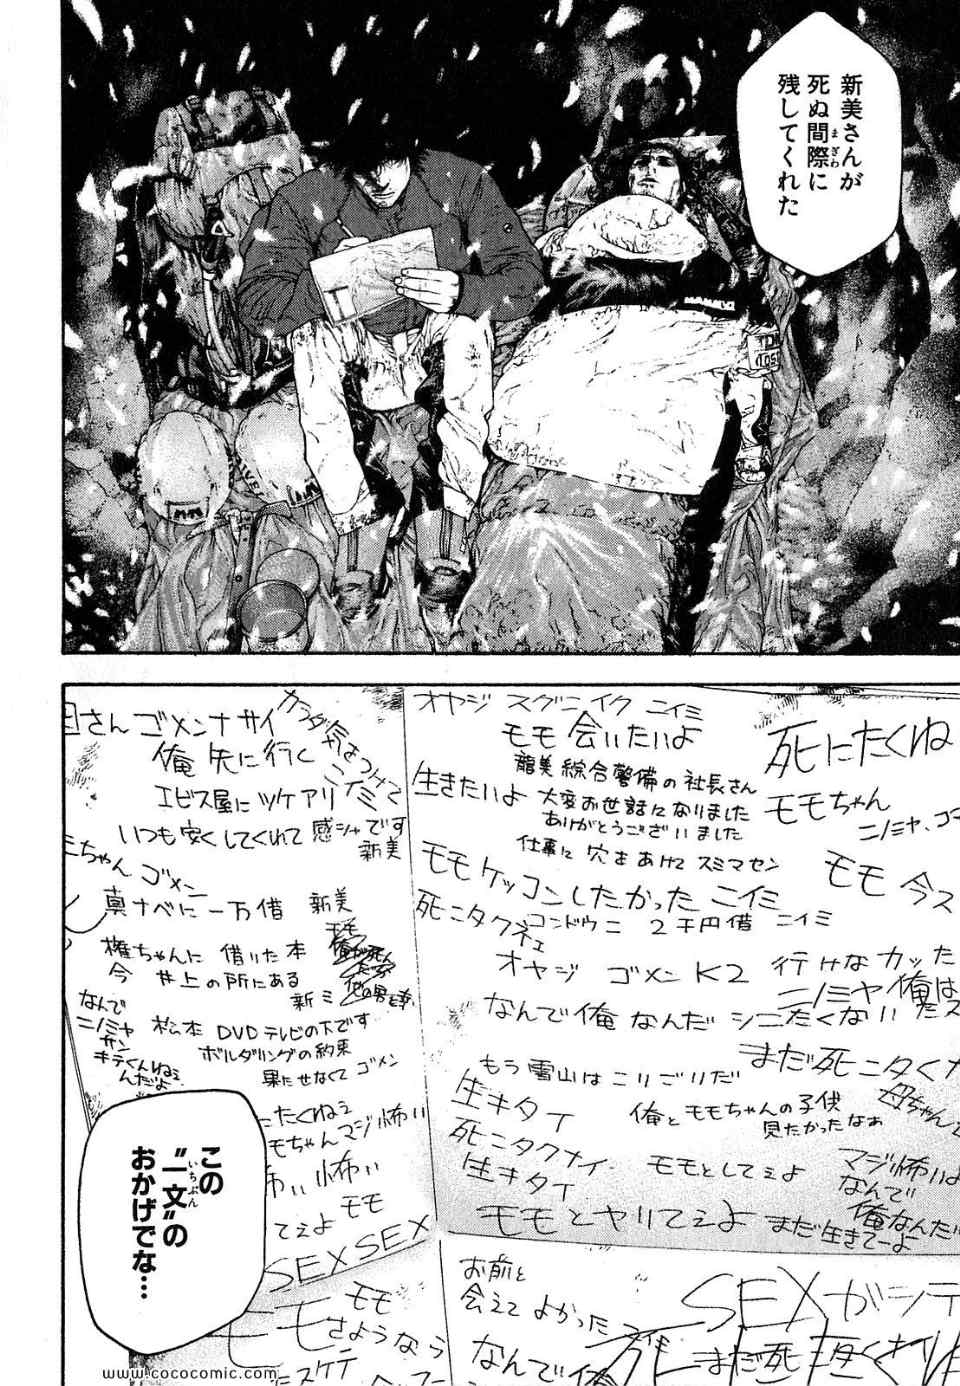 新美さんが
死ぬ間際に
残してくれた
まぎわ
オヤジ スグニイク ニイミ
モモ 会いたいよ
龍美綜合警備の社長さん
大変お世話になりました
ありがとうございました
仕事に穴をあけてスミマセン
生きたいよ
死にたくね
モモちゃん
ニノミヤ、コマ
モモ 今ス
モモケッコンしたかった ニイミ
死ニタクネェ
コンドウニ 2千円借 ニイミ
オヤジ ゴメン K2
行けなカッた
ニノミヤ 俺は
なんで俺なんだ シニたくない
まだ死ニタくナ
もう雪山はこりごりだ
生キタイ
俺とモモちゃんの子供
見たかったなぁ
母ちゃん
死ニタクナイ
生キタイ
モモとしてぇよ
マジ怖いよ
なんで
俺なんだ
モモとヤリてぇよ
まだ生きてーよ
さんゴメンナサイ
カラダ気をつけて
俺 先に行く
ニイミ
エビス屋に ツケアリ
いつも安くしてくれて 感シャです
新美
ミちゃん ゴメン
真ナベに一万借 新美
モモ
権ちゃんに 借りた本
今 井上の所にある
新ミ
なんで
ニノミヤ
サン
キテくんねぇ
んだよ
松本 DVDテレビの下です
ボルダリングの約束
果たせなくてゴメン
たくねぇ
モちゃんマジ怖い
怖い 怖い
モモ
てぇよ
SEXSEX
モモ
モモ
さようなら
スケテ
お前と
会えて よかった
なんで俺
SEXがシテ
まだ死
この
“一文”の
おかげでな…
いちぶん
www.cococomic.com